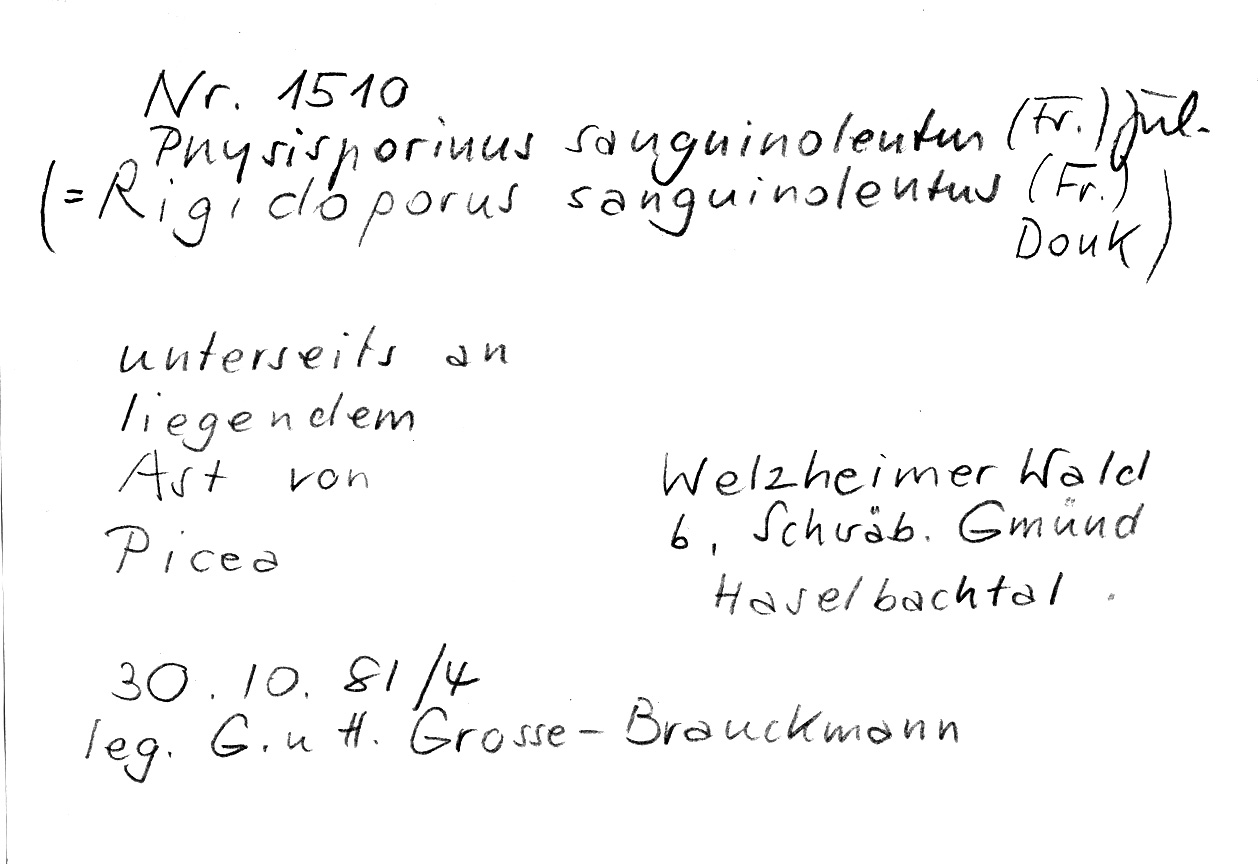 Nr. 1510
Physisporinus sanguinolentus (Fr.) Jül.
(= Rigidoporus sanguinolentus (Fr.)
Donk)
unterseits an
liegendem
Ast von
Picea
Welzheimer Wald
b. Schwäb. Gmünd
Haselbachtal.
30.10.81/4
leg. G. u H. Grosse-Brauckmann